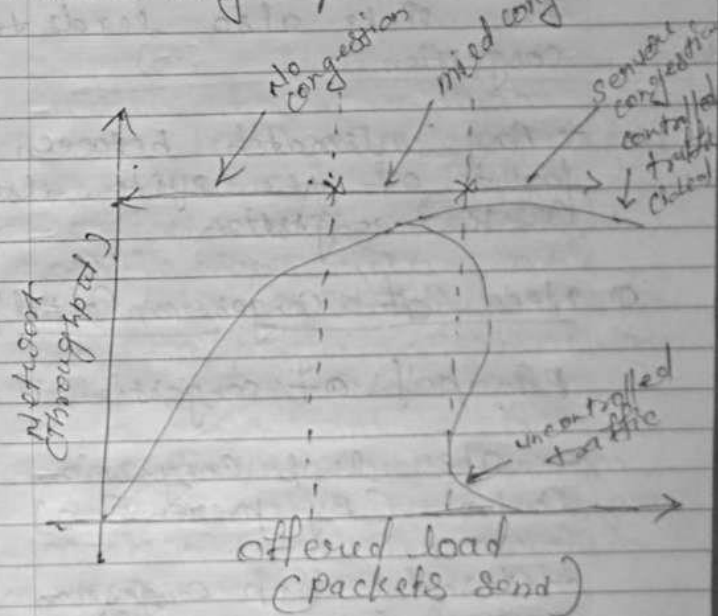 No
congestion
mild cong
servere
congestion
controlled
traffic
(ideal)
Network
(Throughput)
uncontrolled
traffic
offered load
(packets send)